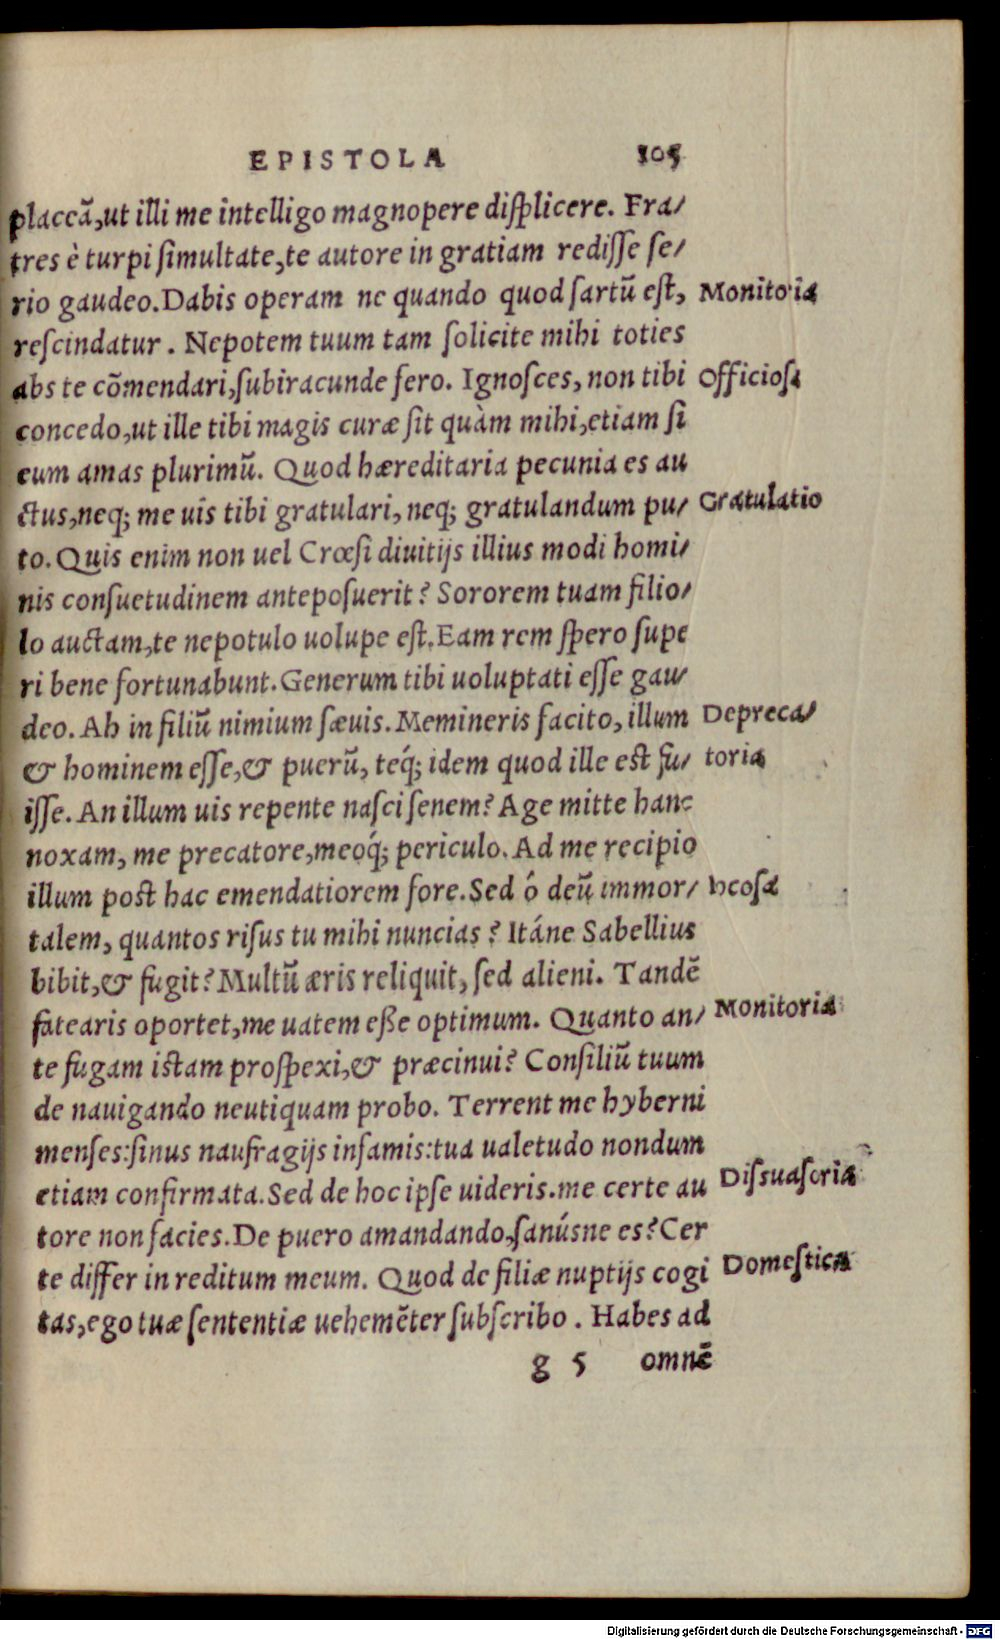 EPISTOLA 105
placeã, ut illi me intelligo magnopere displicere. Fra/
tres è turpi simultate, te autore in gratiam redisse se/
rio gaudeo. Dabis operam ne quando quod sartũ est, Monitoria
rescindatur. Nepotem tuum tam solicite mihi toties
abs te cõmendari, subiracunde fero. Ignosces, non tibi Officiosa
concedo, ut ille tibi magis curæ sit quàm mihi, etiam si
eum amas plurimũ. Quod hæreditaria pecunia es au
ctus, neq; me uis tibi gratulari, neq; gratulandum pu/ Gratulatio
to. Quis enim non uel Crœsi diuitijs illius modi homi/
nis consuetudinem anteposuerit? Sororem tuam filio/
lo auctam, te nepotulo uolupe est. Eam rem spero supe
ri bene fortunabunt. Generum tibi uoluptati esse gau/
deo. Ah in filiũ nimium sæuis. Memineris facito, illum Depreca/
& hominem esse, & puerũ, teq́; idem quod ille est fu/ toria
isse. An illum uis repente nasci senem? Age mitte hanc
noxam, me precatore, meoq́; periculo. Ad me recipio
illum post hac emendatiorem fore. Sed ó deũ immor/ Iocosa
talem, quantos risus tu mihi nuncias? Itáne Sabellius
bibit, & fugit? Multũ æris reliquit, sed alieni. Tandẽ
fatearis oportet, me uatem eße optimum. Quanto an/ Monitoria
te fugam istam prospexi, & præcinui? Consiliũ tuum
de nauigando neutiquam probo. Terrent me hyberni
menses: sinus naufragijs infamis: tua ualetudo nondum
etiam confirmata. Sed de hoc ipse uideris. me certe au Dissuasoria
tore non facies. De puero amandando, sanúsne es? Cer
te differ in reditum meum. Quod de filiæ nuptijs cogi Domestica
tas, ego tuæ sententiæ uehemẽter subscribo. Habes ad
g 5 omnẽ
Digitalisierung gefördert durch die Deutsche Forschungsgemeinschaft - DFG